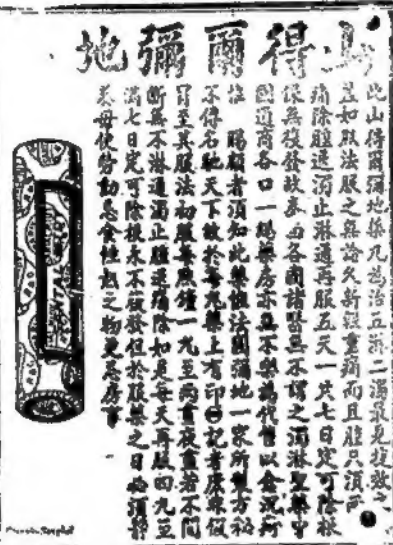 山得爾彌地
此山得爾彌地丸為治五淋二濁最見捷效之
且如照法服之無論久新輕重痛而且腫只須兩
痛除腫退濁止淋通再服五天一共七日定可除根
保無復發故泰西各國諸醫無不謂之濁淋聖藥中
國通商各口一埠藥房亦無不樂為代售以
惟 賜顧者須知此藥惟法國彌地一家所製方秘
不得名馳天下故於每丸藥上有印記者庶
冒至其服法初服每點鐘一丸至兩晝夜若不間
斷無不淋通濁止腫退痛除如是每天再服四丸至
滿七日定可除根永不復發但於服藥之日必須靜
養毋使勞動忌食性熱之物更忌房事
SANTAL